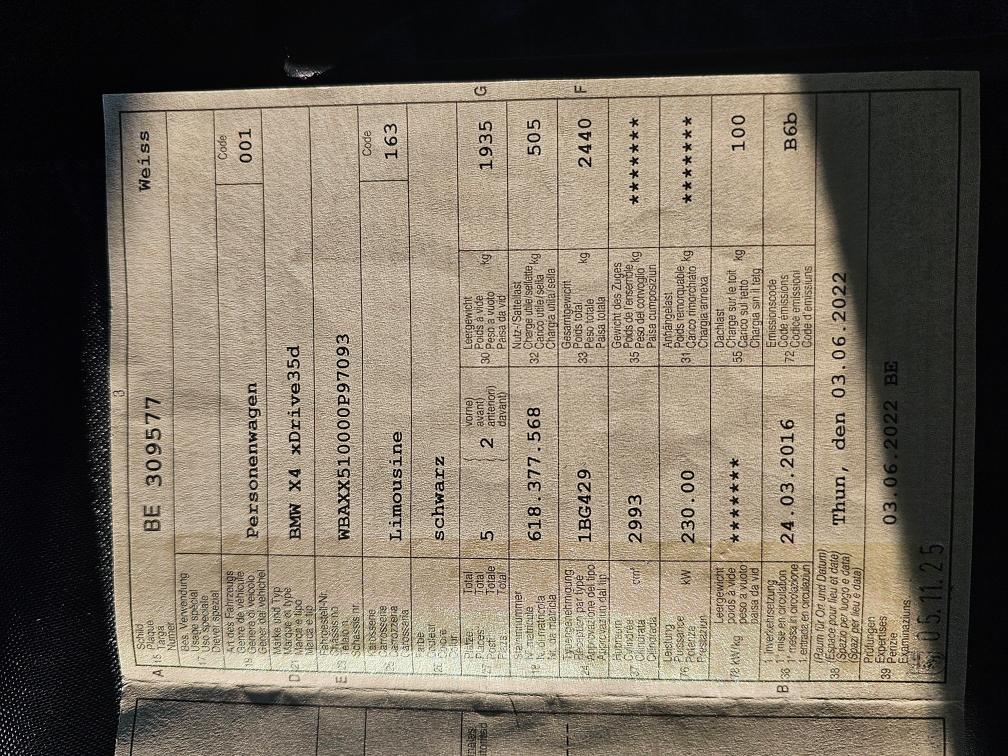 3
A 15 Schild
Plaque
Targa
Numer
BE 309577
Weiss
17 Bes. Verwendung
Usage spécial
Uso speciale
Diever spezial
19 Art des Fahrzeugs
Genre de véhicule
Genere di veicolo
Gener dal vehichel
Personenwagen
Code
001
D 21 Marke und Typ
Marque et type
Marca e tipo
Marca e tip
BMW X4 xDrive35d
E 23 Fahrgestell-Nr.
Châssis no
Telaio n.
Schassis nr.
WBAXX510000P97093
25 Karosserie
Carrosserie
Carrozzeria
Carossaria
Limousine
Code
163
26 Farbe
Couleur
Colore
Colur
schwarz
27 Plätze
Places
Posti
Plazs
Total
Total
Totale
Total
5
2
vorne)
avant)
anteriori)
davant)
30 Leergewicht
Poids à vide
Peso a vuoto
Paisa da vid
kg
1935
G
18 Stammnummer
No matricule
N. di matricola
Nr. da matricla
618.377.568
32 Nutz-/Sattellast
Charge utile/sellette
Carico utile/sella
Chargia utila/sella
kg
505
24 Typengenehmigung
Réception par type
Approvazione del tipo
Approvaziun dal tip
1BG429
33 Gesamtgewicht
Poids total
Peso totale
Paisa totala
kg
2440
F
37 Hubraum
Cylindrée
Cilindrata
Cilindrada
cm³
2993
35 Gewicht des Zuges
Poids de l'ensemble
Peso del convoglio
Paisa cumposiziun
kg
*******
76 Leistung
Puissance
Potenza
Prestaziun
kW
230.00
31 Anhängelast
Poids remorquable
Carico rimorchiato
Chargia annexa
kg
*******
78 kW/kg
Leergewicht
poids à vide
peso a vuoto
paisa da vid
*******
55 Dachlast
Charge sur le toit
Carico sul tetto
Chargia sin il tetg
kg
100
B 36 1. Inverkehrsetzung
1re mise en circulation
1a messa in circolazione
1. entrada en circulaziun
24.03.2016
72 Emissionscode
Code émissions
Codice emissioni
Code d'emissiuns
B6b
38 (Raum für Ort und Datum)
(Espace pour lieu et date)
(Spazio per luogo e data)
(Spazi per lieu e data)
Thun, den 03.06.2022
39 Prüfungen
Expertises
Perizie
Examinaziuns
03.06.2022 BE
05.11.25